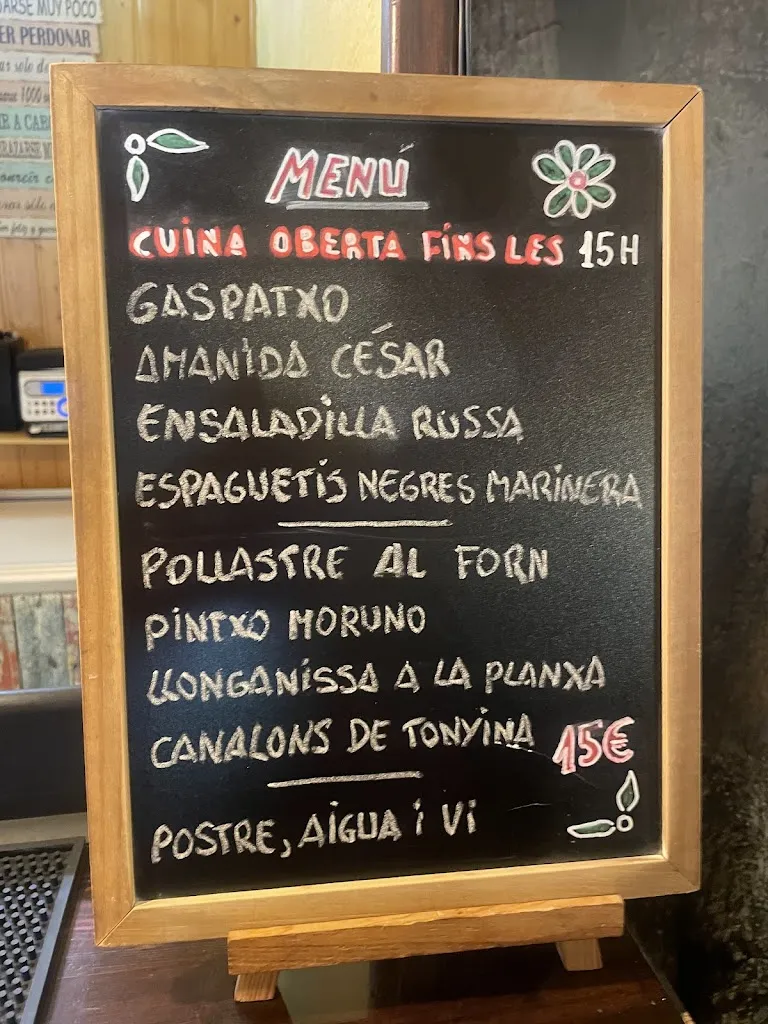 MUY POCO
PERDONAR
MENÚ
CUINA OBERTA FINS LES 15H
GASPATXO
AMANIDA CÉSAR
ENSALADILLA RUSSA
ESPAGUETIS NEGRES MARINERA
POLLASTRE AL FORN
PINTXO MORUNO
LLONGANISSA A LA PLANXA
CANALONS DE TONYINA 15€
POSTRE, AIGUA i Vi